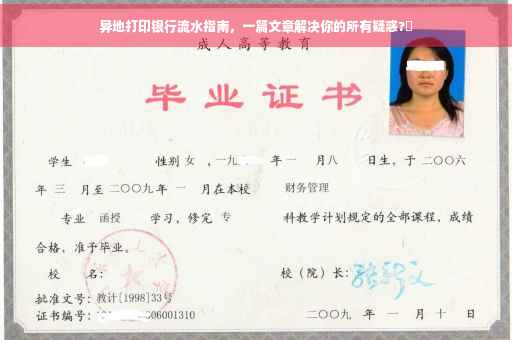 异地打印银行流水指南，一篇文章解决你的所有疑惑?
成人高等教育
毕业证书
学生 性别 女 ，一九 年 一 月八 日生，于 二〇〇六
年 三 月至 二〇〇九 年 一 月在本校 财务管理
专业 函授 学习，修完 专 科教学计划规定的全部课程，成绩
合格，准予毕业。
校 名： 校（院）长：
批准文号：教计[1998]33号
证书编号： 06001310 二〇〇九 年 一 月 十 日